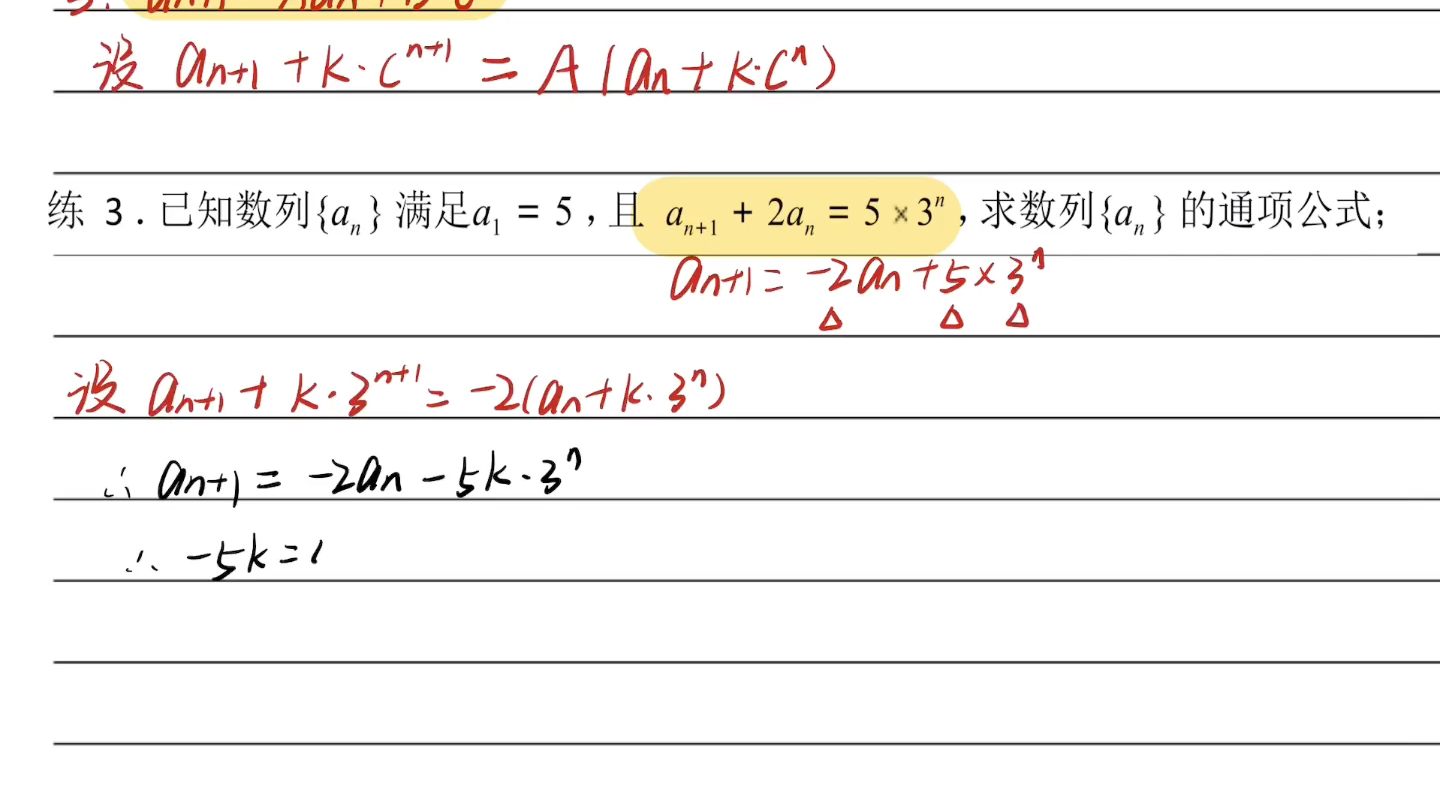 设 aₙ₊₁ + k·cⁿ⁺¹ = A(aₙ + k·cⁿ)
练 3 . 已知数列{aₙ}满足a₁ = 5 , 且 aₙ₊₁ + 2aₙ = 5 × 3ⁿ , 求数列{aₙ}的通项公式；
aₙ₊₁ = -2aₙ + 5 × 3ⁿ
Δ Δ Δ
设 aₙ₊₁ + k·3ⁿ⁺¹ = -2(aₙ + k·3ⁿ)
∴ aₙ₊₁ = -2aₙ - 5k·3ⁿ
∴ -5k =